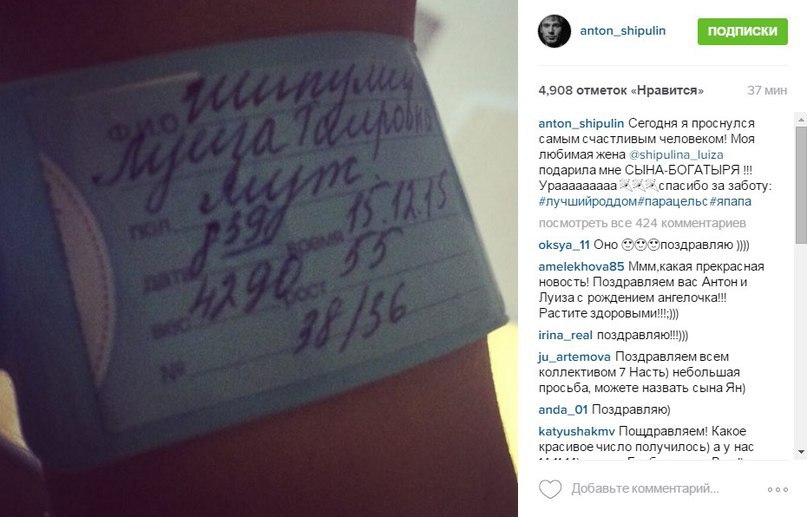 Ф.И.О Шипулин
Луиза Таировна
пол муж
дата 8 39 время 13.12.15
вес 4290 рост 55
38/36
№
anton_shipulin
ПОДПИСКИ
4,908 отметок «Нравится»
37 мин
anton_shipulin Сегодня я проснулся
самым счастливым человеком! Моя
любимая жена @shipulina_luiza
подарила мне СЫНА-БОГАТЫРЯ !!!
Урааааааааа спасибо за заботу:
#лучшийроддом#парацельс#япапа
посмотреть все 424 комментариев
oksya_11 Оно 😍😍😍поздравляю ))))
amelekhova85 Ммм,какая прекрасная
новость! Поздравляем вас Антон и
Луиза с рождением ангелочка!!!
Растите здоровыми!!!;)))
irina_real поздравляю!!!)))
ju_artemova Поздравляем всем
коллективом 7 Насть) небольшая
просьба, можете назвать сына Ян)
anda_01 Поздравляю)
katyushakmv Пощдравляем! Какое
красивое число получилось) а у нас
Добавьте комментарий...